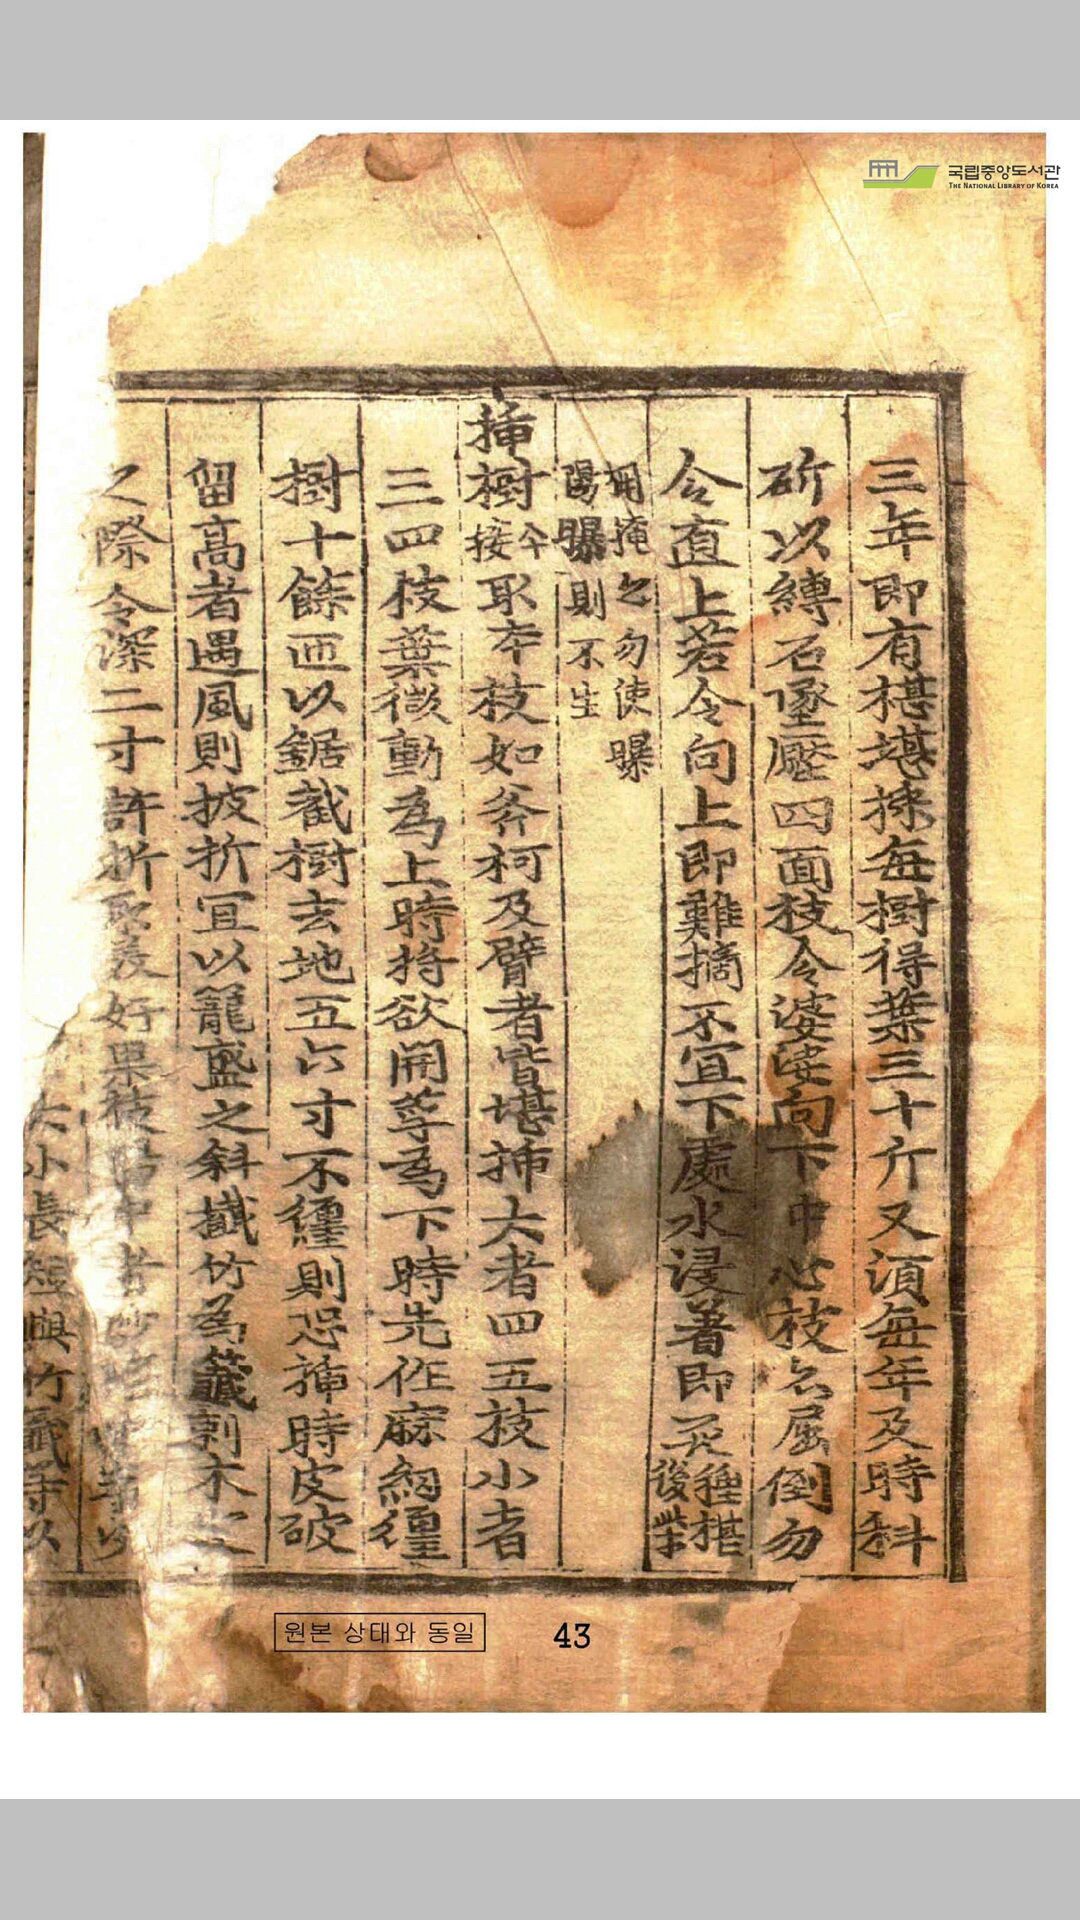 국립중앙도서관
THE NATIONAL LIBRARY OF KOREA
三年即有椹堪採每樹得葉三十斤又須每年及時科
斫以縛石墜壓四面枝令婆娑向下中心枝亦屈倒勿
令直上若令向上即難摘不宜下處水浸著即死種椹
後柴
用掩之勿使曝
陽曝則不生
揷樹今
接取本枝如斧柯及臂者皆堪揷大者四五枝小者
三四枝葉微動爲上時將欲開莩爲下時先作麻紉纏
樹十餘匝以鋸截樹去地五六寸不纏則恐揷時皮破
留高者遇風則披折宜以籠盛之斜攕竹爲籤刺木
之際令深二寸許折取美好果枝陽中者
大小長短與竹籤等以
원본 상태와 동일
43